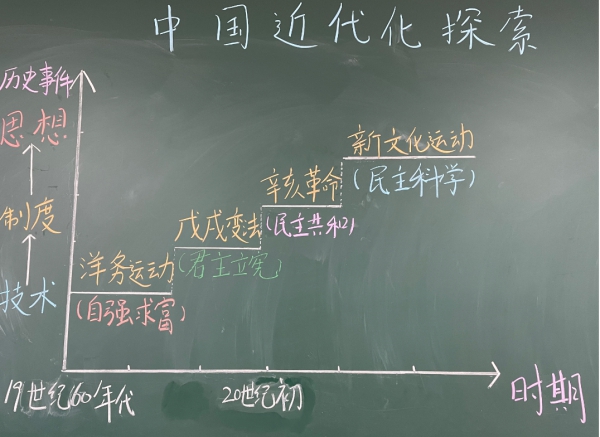 中国近代化探索
历史事件
思想
制度
技术
新文化运动
(民主科学)
辛亥革命
(民主共和)
戊戌变法
(君主立宪)
洋务运动
(自强求富)
19世纪60年代
20世纪初
时期